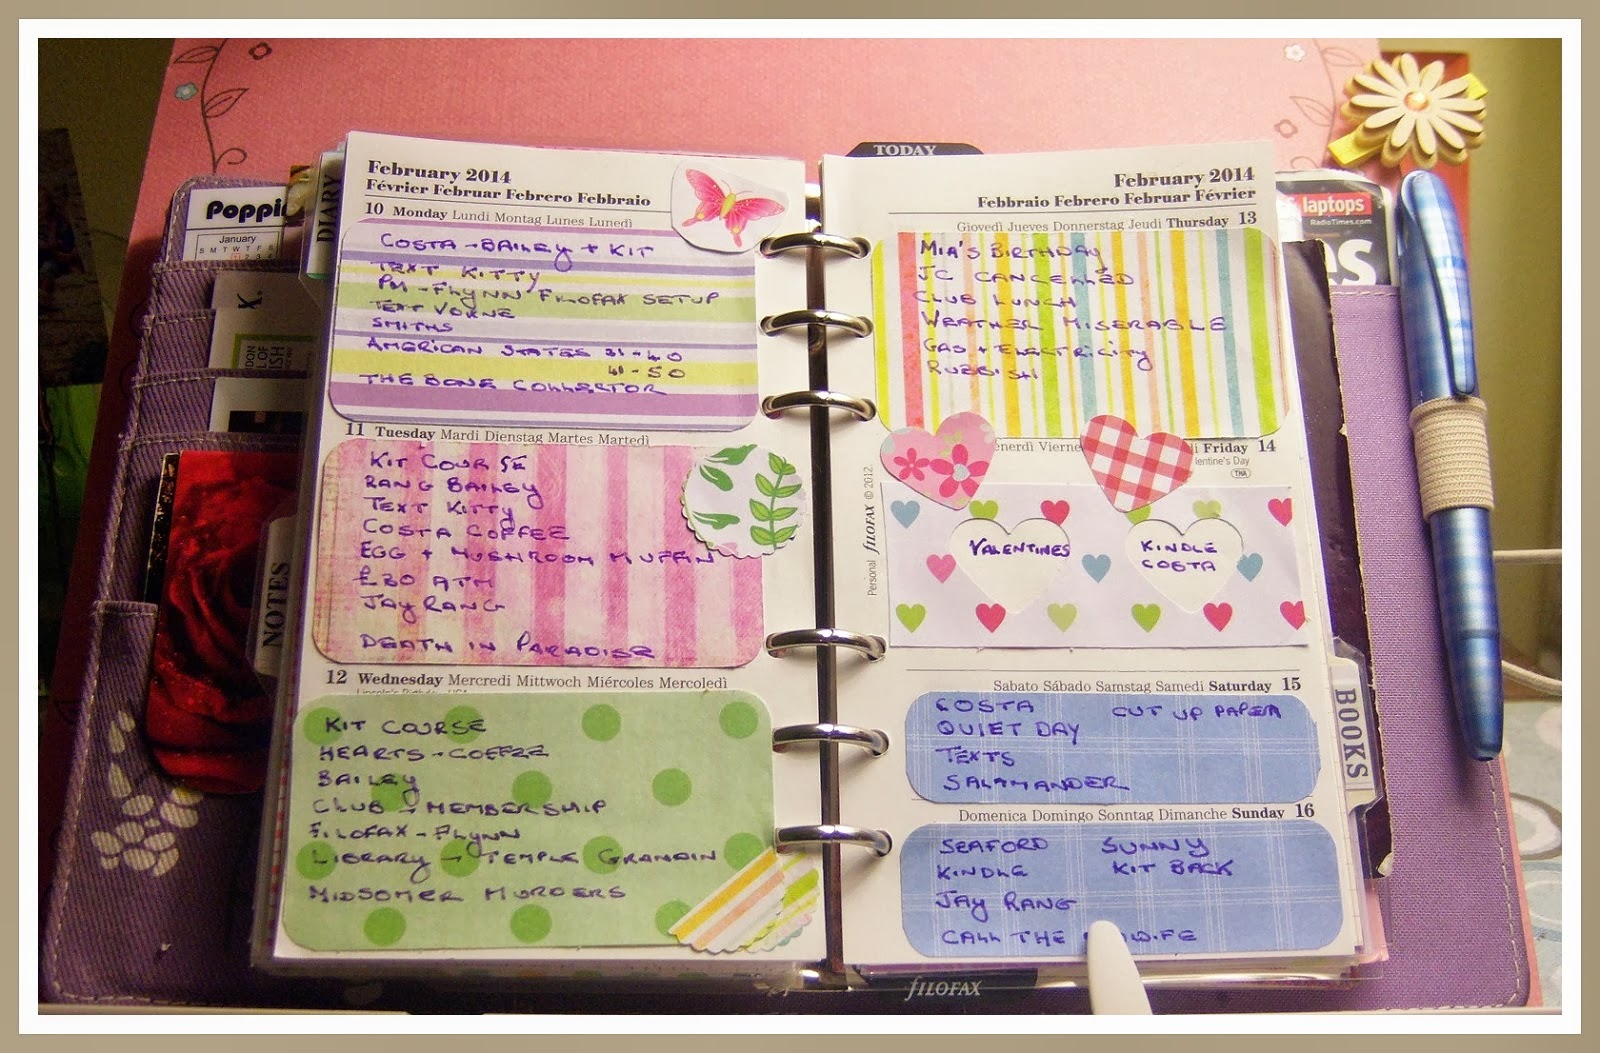 Poppi
January
S M T W T F S
DIARY
K.
NOTES
February 2014
Février Februar Febrero Febbraio
10 Monday Lundi Montag Lunes Lunedì
COSTA - BAILEY + KIT
TEXT KITTY
PM - FLYNN FILOFAX SETUP
TEXT VORNE
SMITHS
AMERICAN STATES 31 - 40
41 - 50
THE BONE COLLECTOR
11 Tuesday Mardi Dienstag Martes Martedì
KIT COURSE
RANG BAILEY
TEXT KITTY
COSTA COFFEE
EGG + MUSHROOM MUFFIN
£30 ATM
JAY RANG
DEATH IN PARADISE
12 Wednesday Mercredi Mittwoch Miércoles Mercoledì
KIT COURSE
HEARTS - COFFEE
BAILEY
CLUB - MEMBERSHIP
FILOFAX - FLYNN
LIBRARY - TEMPLE GRANDIN
MIDSOMER MURDERS
TODAY
February 2014
Febbraio Febrero Februar Février
Giovedì Jueves Donnerstag Jeudi Thursday 13
MIA'S BIRTHDAY
JC CANCELLED
CLUB LUNCH
WEATHER MISERABLE
GAS + ELECTRICITY
RUBBISH
enerdì Vierne i Friday 14
lentine's Day
THA
VALENTINES
KINDLE
COSTA
Personal FILOFAX © 2012
Sabato Sábado Samstag Samedi Saturday 15
COSTA CUT UP PAPER
QUIET DAY
TEXTS
SALAMANDER
Domenica Domingo Sonntag Dimanche Sunday 16
SEAFORD SUNNY
KINDLE KIT BACK
JAY RANG
CALL THE
FILOFAX
laptops
RadioTimes.com
es
BOOKS